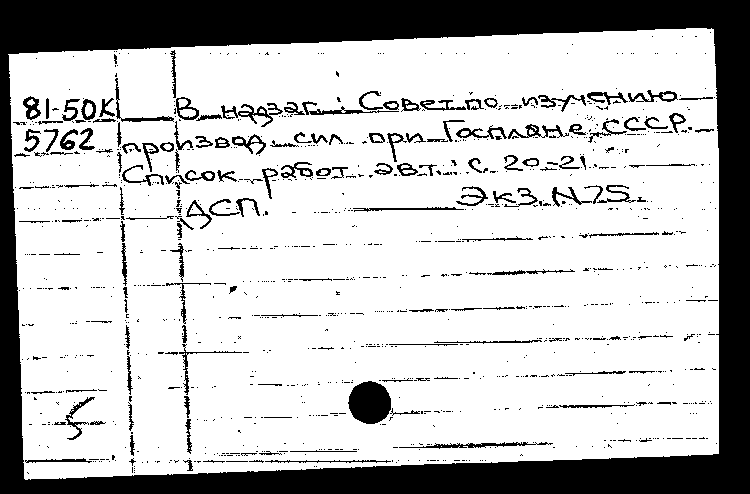 81-50К В надзаг.: Совет по изучению
5762 производ. сил при Госплане СССР.
Список работ авт.: с. 20-21.
ДСП. Экз. N 75.
5